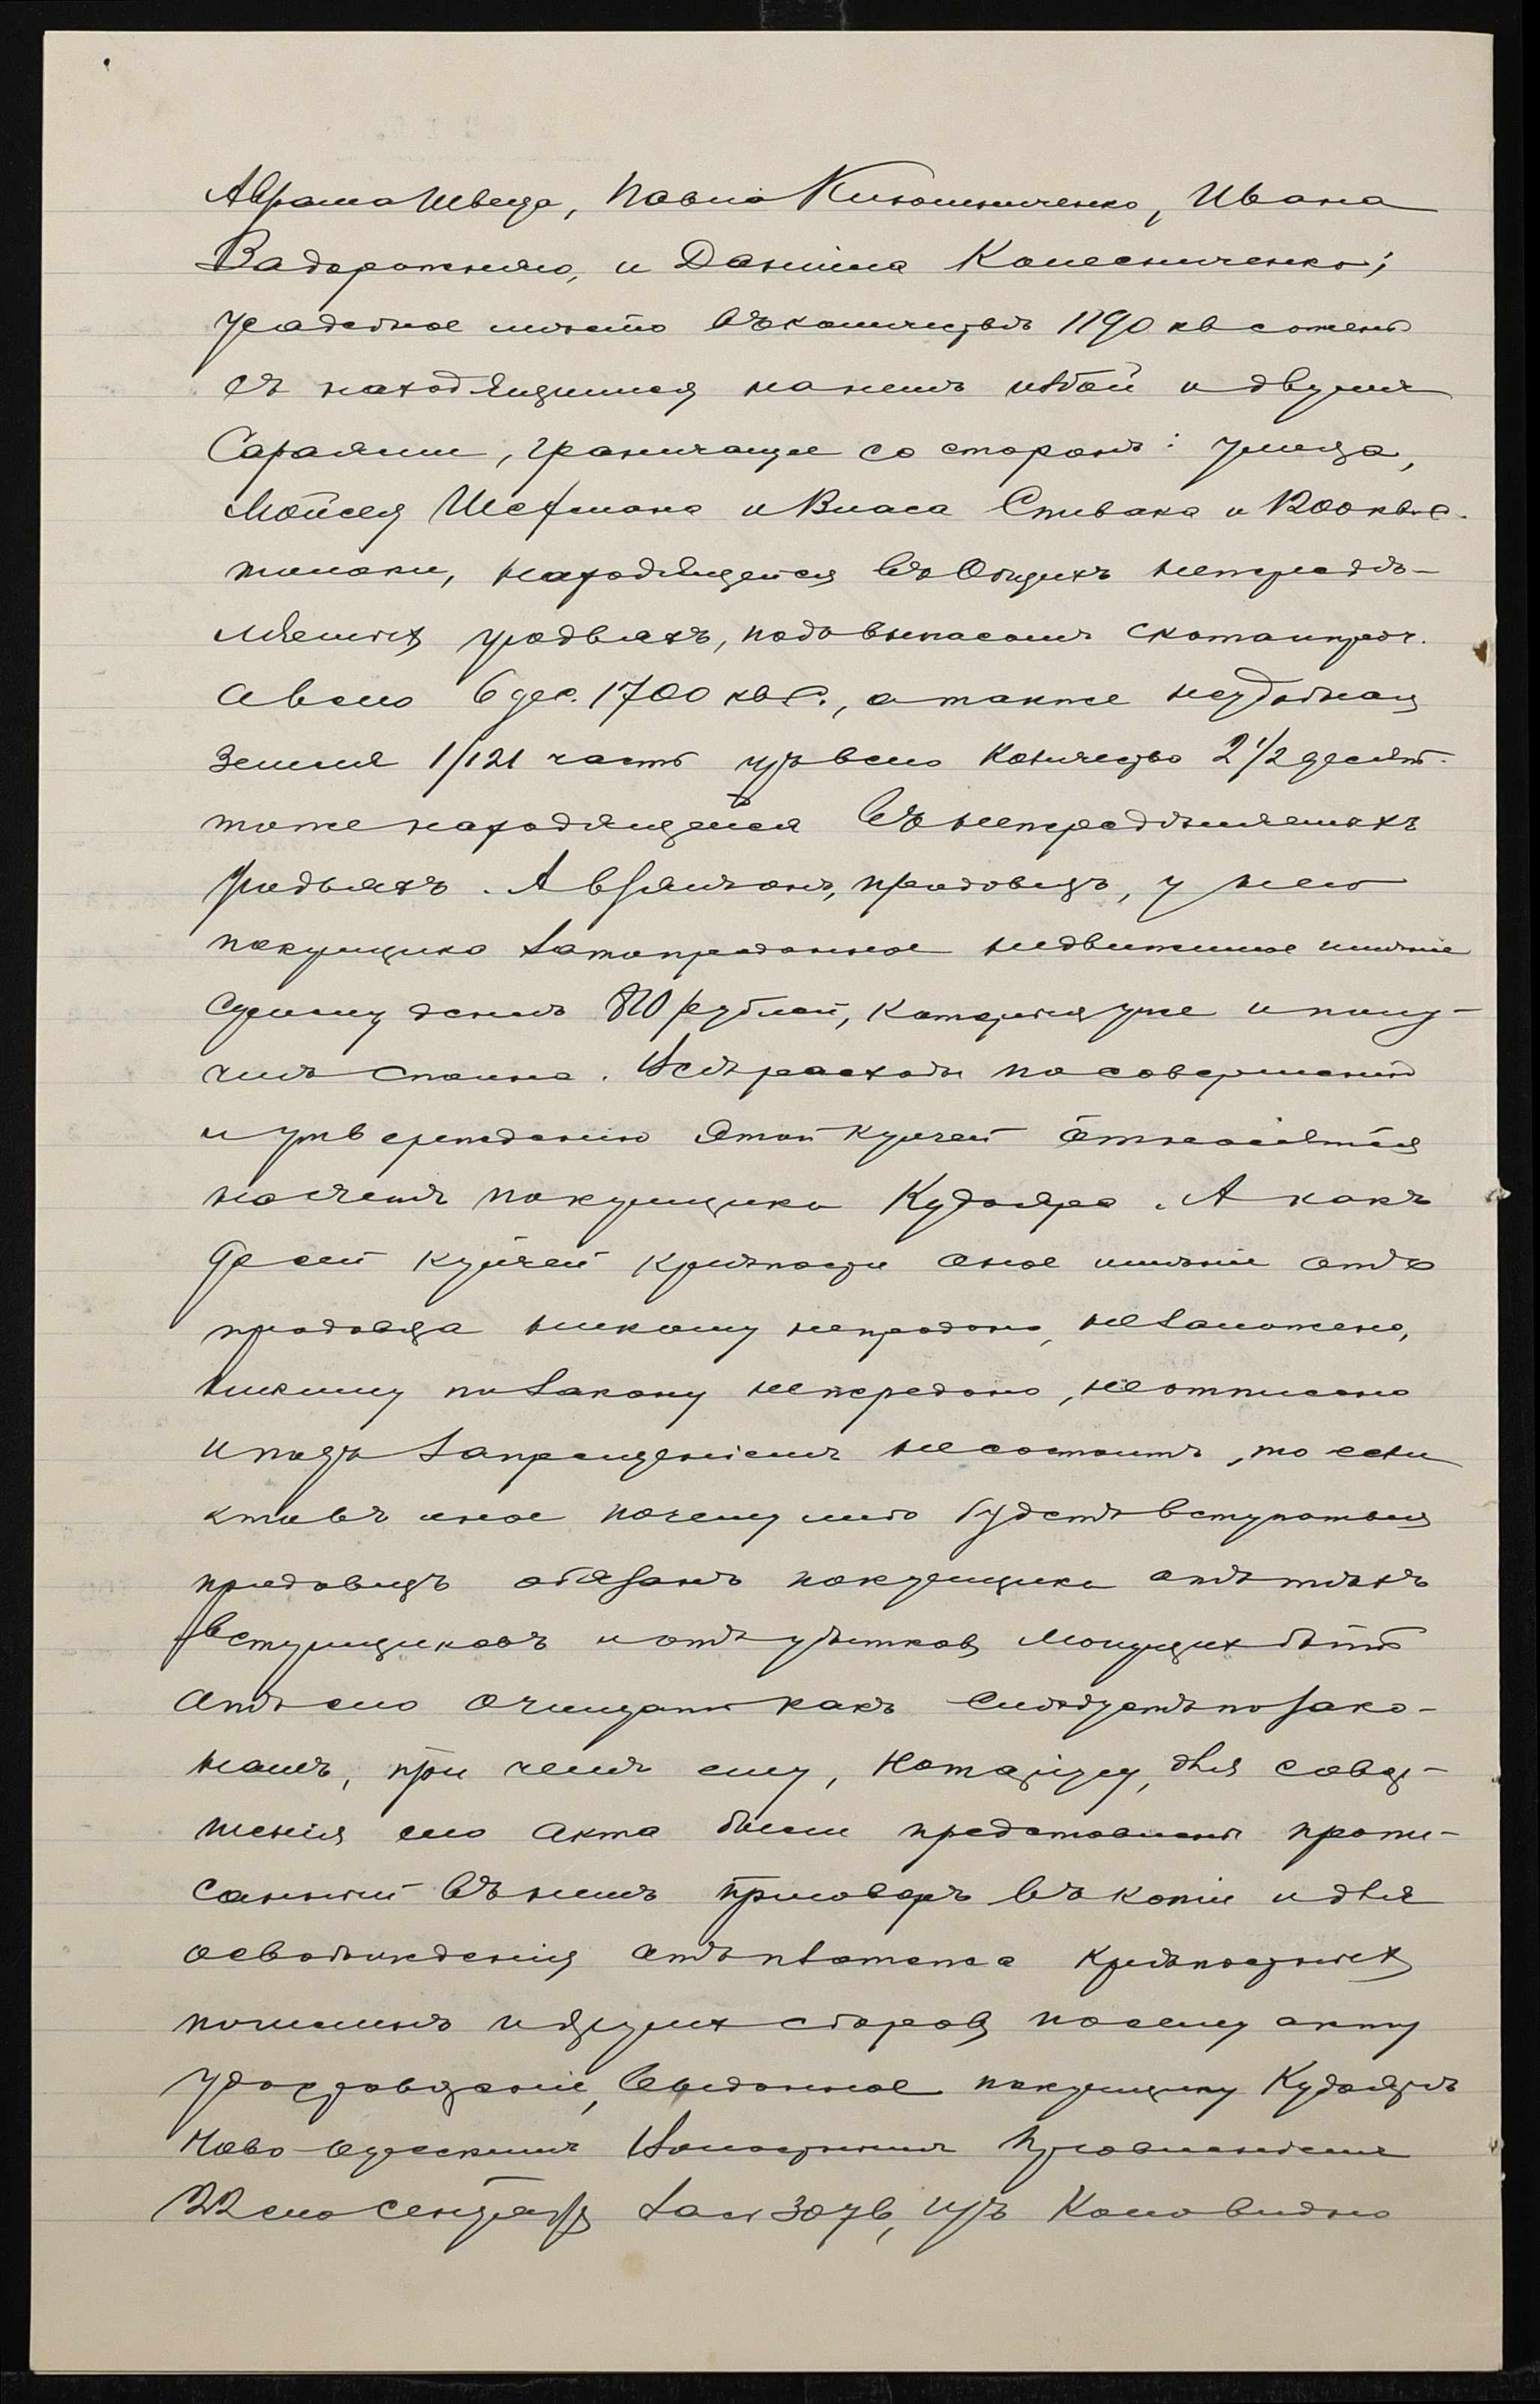 Аврама Швеца, Павла Кирошниченко, Ивана
Задорожняго, и Даніила Колесниченко;
усадебное мѣсто въ количествѣ 1190 кв сажень
съ находящимися на немъ избой и двумя
Сараями, граничащее со сторонъ: улица,
Мойсея Шефмана и Власа Спивака и 1200 кв. с.
толоки, находящейся въ Общихъ непередѣ-
ляемых урядьяхъ, подъ выпасомъ скота и проч.
а всего 6 дес. 1700 кв С., а также неудобная
земля 1/121 часть изъ всего Количества 2 1/2 десят.
тоже находящейся въ непередѣляемыхъ
урядьяхъ. А взялъ онъ, продавецъ, у него
покупщика за то проданное недвижимое имѣніе
Сумму денегъ 820 рублей, которыя уже и полу-
чилъ сполна. Всѣ расходы по совершенію
и утвержденію этой купчей относятся
на счетъ покупщика Кудояра. А какъ
до сей купчей крѣпости оное имѣніе отъ
продавца никому непродано, незаложено,
никому по закону непередано, неотписано
и подъ запрещеніемъ несостоитъ, то если
кто въ оное почему либо будетъ вступаться
продавецъ обязанъ покупщика отъ тѣхъ
вступщиковъ и отъ убытков могущих быть
отъ сего очищать какъ слѣдуетъ по зако-
намъ, при чемъ ему, Нотаріусу, для совер-
шенія сего акта были представлены пропи-
санный въ немъ приговоръ въ копіи и для
освобожденія отъ платежа крѣпостных
пошлинъ и других сборов по сему акту
удостовѣреніе, выданное покупщику Кудояръ
Ново-Одесскимъ Волостнымъ Правленіемъ
22 сего сентября за № 3076, изъ Коего видно